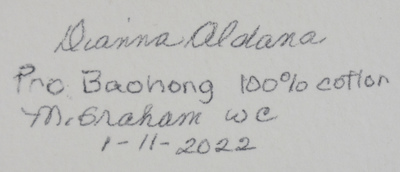 Dianna Aldana
Pro Baohong 100% cotton
M. Graham WC
1-11-2022